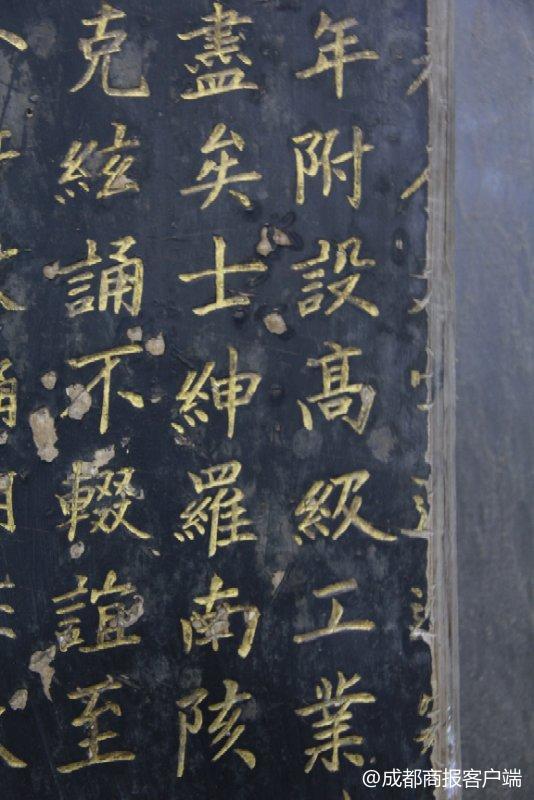 年附設高級工業
盡矣士紳羅南陔
克絃誦不輟誼至
@成都商报客户端